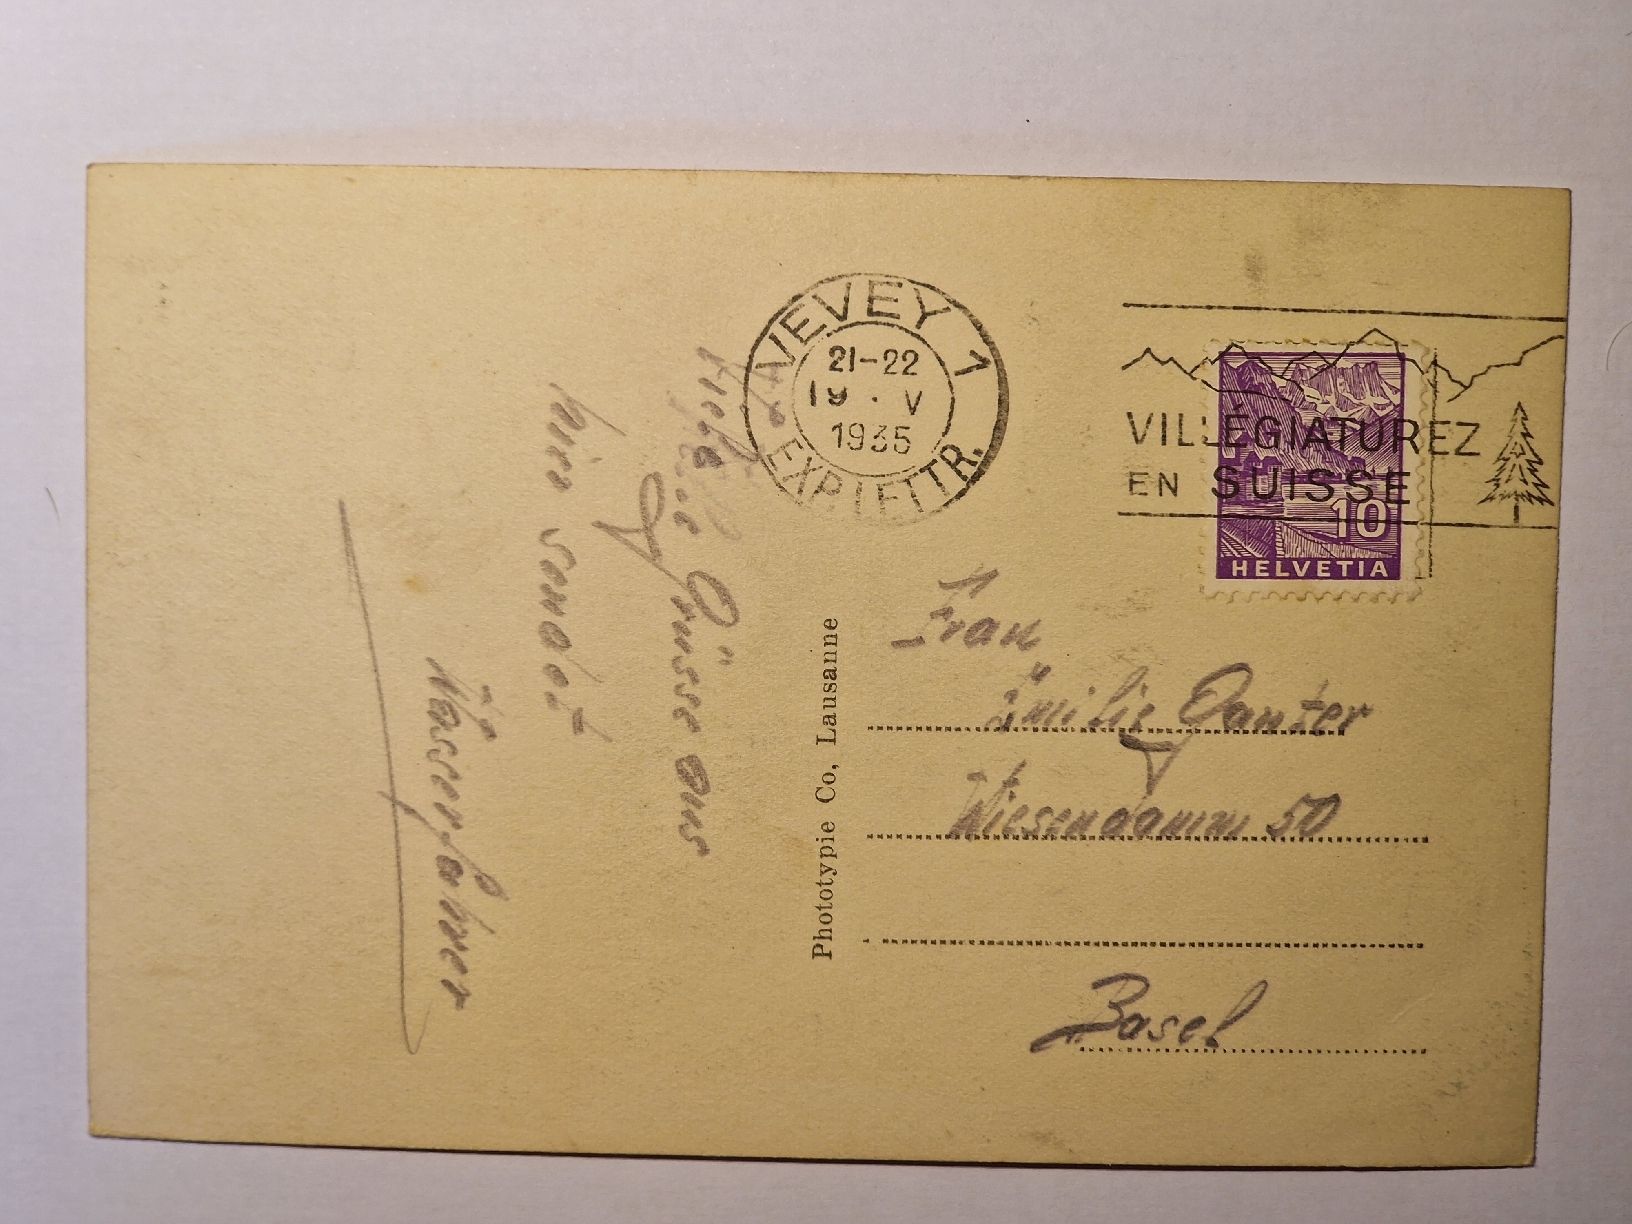 Liebe Grüsse aus
hier sendet
Wasserfahrer
Phototypie Co, Lausanne
VEVEY 1
21-22
19 . V
1935
EXP. LETTR.
VILLÉGIATUREZ
EN SUISSE
10
HELVETIA
Frau
Emilie Ganter
Wiesendamm 50
Basel